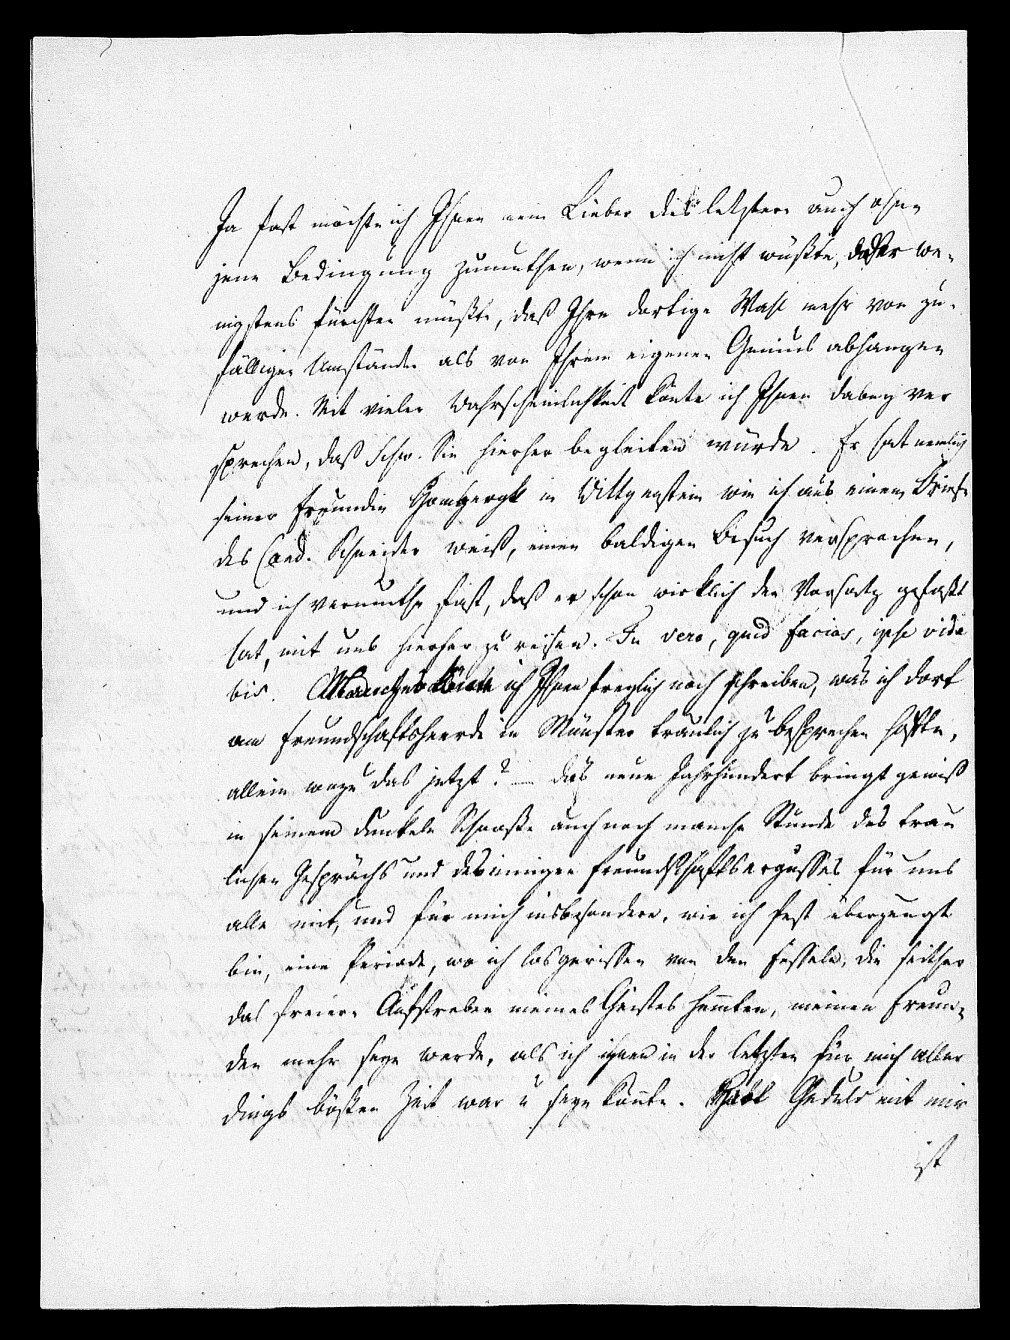 Ja fast möchte ich Ihnen mein Lieber das letztere auch ohne
jene Bedingung zumuthen, wenn ich nicht wüßte, oder we-
nigstens fürchten müßte, daß Ihre dortige Wahl mehr von zu-
fälligen Umständen als von Ihrem eigenen Genius abhangen
werde. Mit vieler Wahrscheinlichkeit könte ich Ihnen dabey ver
sprechen, daß Schw. Sie hierher begleiten würde. Er hat nemlich
seiner Freundin Hombergk in Wittgenstein wie ich aus einem Briefe
des Cand. Schneider weiß, einen baldigen Besuch versprochen,
und ich vermuthe fast, daß er schon wirklich den Vorsatz gefaßt
hat, mit uns hierher zu reisen. Tu vero, quid facias, ipse vide
bis. Manches könte ich Ihnen freylich noch schreiben, was ich dort
am Freundschaftsheerde in Münster traulich zu besprechen hoffte,
allein wozu das jetzt? — das neue Jahrhundert bringt gewiß
in seinem dunkeln Schooße auch noch manche Stunde des trau
lichen Gesprächs und des innigen Freundschaftsergusses für uns
alle mit, und für mich insbesondere, wie ich fest überzeugt
bin, eine Periode, wo ich losgerissen von den Fesseln, die seither
das freiere Aufstreben meines Geistes hemten, meinen Freun-
den mehr seyn werde, als ich ihnen in der letzten für mich aller
dings bösen Zeit war u seyn konte. Habt Geduld mit mir
ist